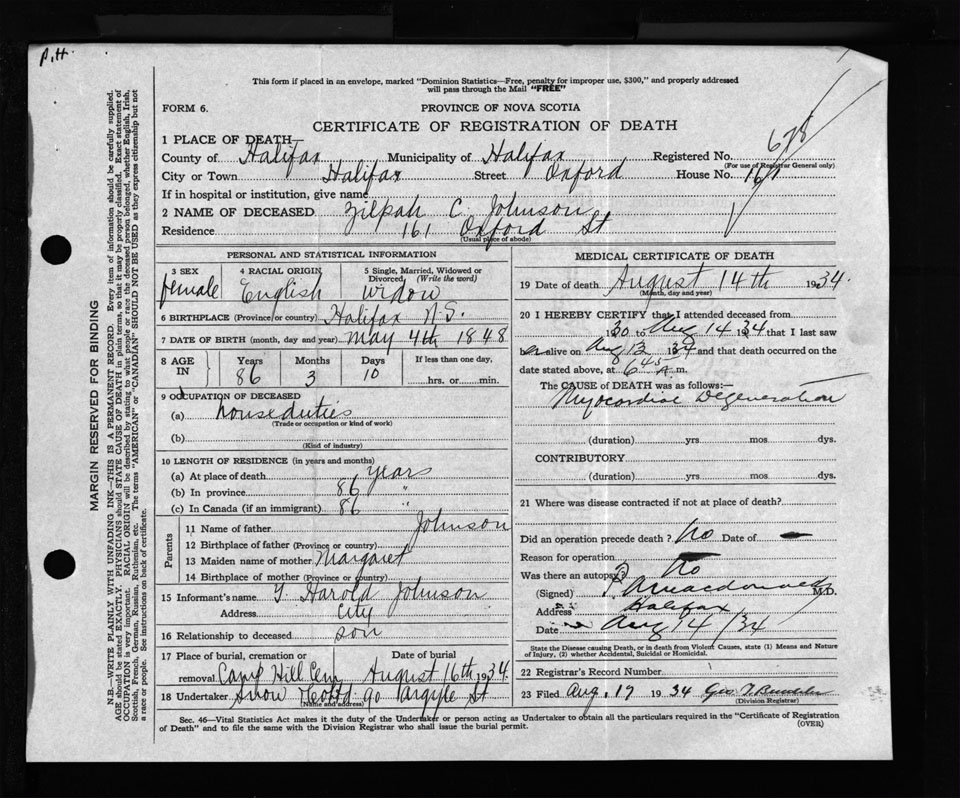 P.H
This form if placed in an envelope, marked "Dominion Statistics—Free, penalty for improper use, $300," and properly addressed
will pass through the Mail "FREE"
FORM 6.
PROVINCE OF NOVA SCOTIA
CERTIFICATE OF REGISTRATION OF DEATH
1 PLACE OF DEATH—
678
County of Halifax Municipality of Halifax Registered No.
(For use of Registrar General only)
City or Town Halifax Street Oxford House No. 161
If in hospital or institution, give name
2 NAME OF DECEASED Zilpah C. Johnson
Residence 161 Oxford St
(Usual place of abode)
PERSONAL AND STATISTICAL INFORMATION
3 SEX female
4 RACIAL ORIGIN English
5 Single, Married, Widowed or
Divorced (Write the word)
widow
6 BIRTHPLACE (Province or country) Halifax N.S.
7 DATE OF BIRTH (month, day and year) May 4th 1848
8 AGE IN
Years Months Days If less than one day,
86 3 10 hrs. or min.
9 OCCUPATION OF DECEASED
(a) house duties
(Trade or occupation or kind of work)
(b)
(Kind of industry)
10 LENGTH OF RESIDENCE (in years and months)
(a) At place of death years
(b) In province 86 "
(c) In Canada (if an immigrant) 86 "
Parents
11 Name of father Johnson
12 Birthplace of father (Province or country)
13 Maiden name of mother Margaret
14 Birthplace of mother (Province or country)
15 Informant's name Harold Johnson
Address City
16 Relationship to deceased son
17 Place of burial, cremation or Date of burial
removal Camp Hill Cem August 16th 1934.
18 Undertaker Snow 90 Argyle St
(Name and address)
MEDICAL CERTIFICATE OF DEATH
19 Date of death August 14th 1934.
(Month, day and year)
20 I HEREBY CERTIFY that I attended deceased from
1930 to Aug 14 1934 that I last saw
her alive on Aug 13 1934 and that death occurred on the
date stated above, at 6.45 A m.
The CAUSE of DEATH was as follows:—
Myocardial Degeneration
(duration) yrs. mos. dys.
CONTRIBUTORY
(duration) yrs. mos. dys.
21 Where was disease contracted if not at place of death?
Did an operation precede death? No Date of
Reason for operation
Was there an autopsy? No
(Signed) Macdonald M.D.
Address Halifax
Date Aug 14/34
State the Disease causing Death, or in death from Violent Causes, state (1) Means and Nature
of Injury, (2) whether Accidental, Suicidal or Homicidal.
22 Registrar's Record Number
23 Filed Aug. 17 1934 Geo.
(Division Registrar)
Sec. 46—Vital Statistics Act makes it the duty of the Undertaker or person acting as Undertaker to obtain all the particulars required in the "Certificate of Registration
of Death" and to file the same with the Division Registrar who shall issue the burial permit.
(OVER)
MARGIN RESERVED FOR BINDING
N.B.—WRITE PLAINLY WITH UNFADING INK—THIS IS A PERMANENT RECORD. Every item of information should be carefully supplied.
AGE should be stated EXACTLY. PHYSICIANS should STATE CAUSE OF DEATH in plain terms, so that it may be properly classified. Exact statement of
OCCUPATION is very important. RACIAL ORIGIN will be described by stating to what people or race the deceased person belonged, whether English, Irish,
Scottish, French, German, Russian, Ruthenian, etc. The terms "AMERICAN" or "CANADIAN" SHOULD NOT BE USED as they express citizenship but not
a race or people. See instructions on back of certificate.